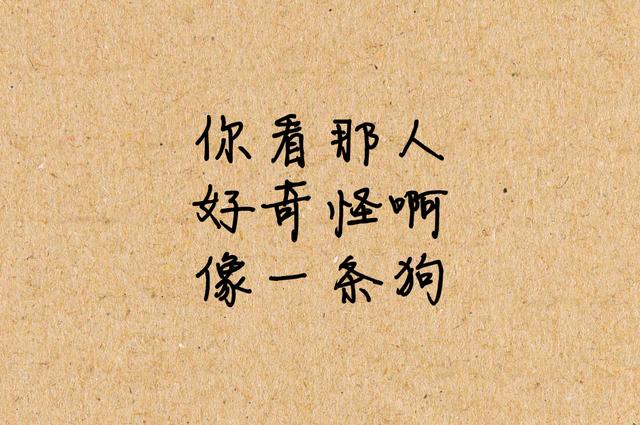 你看那人
好奇怪啊
像一条狗